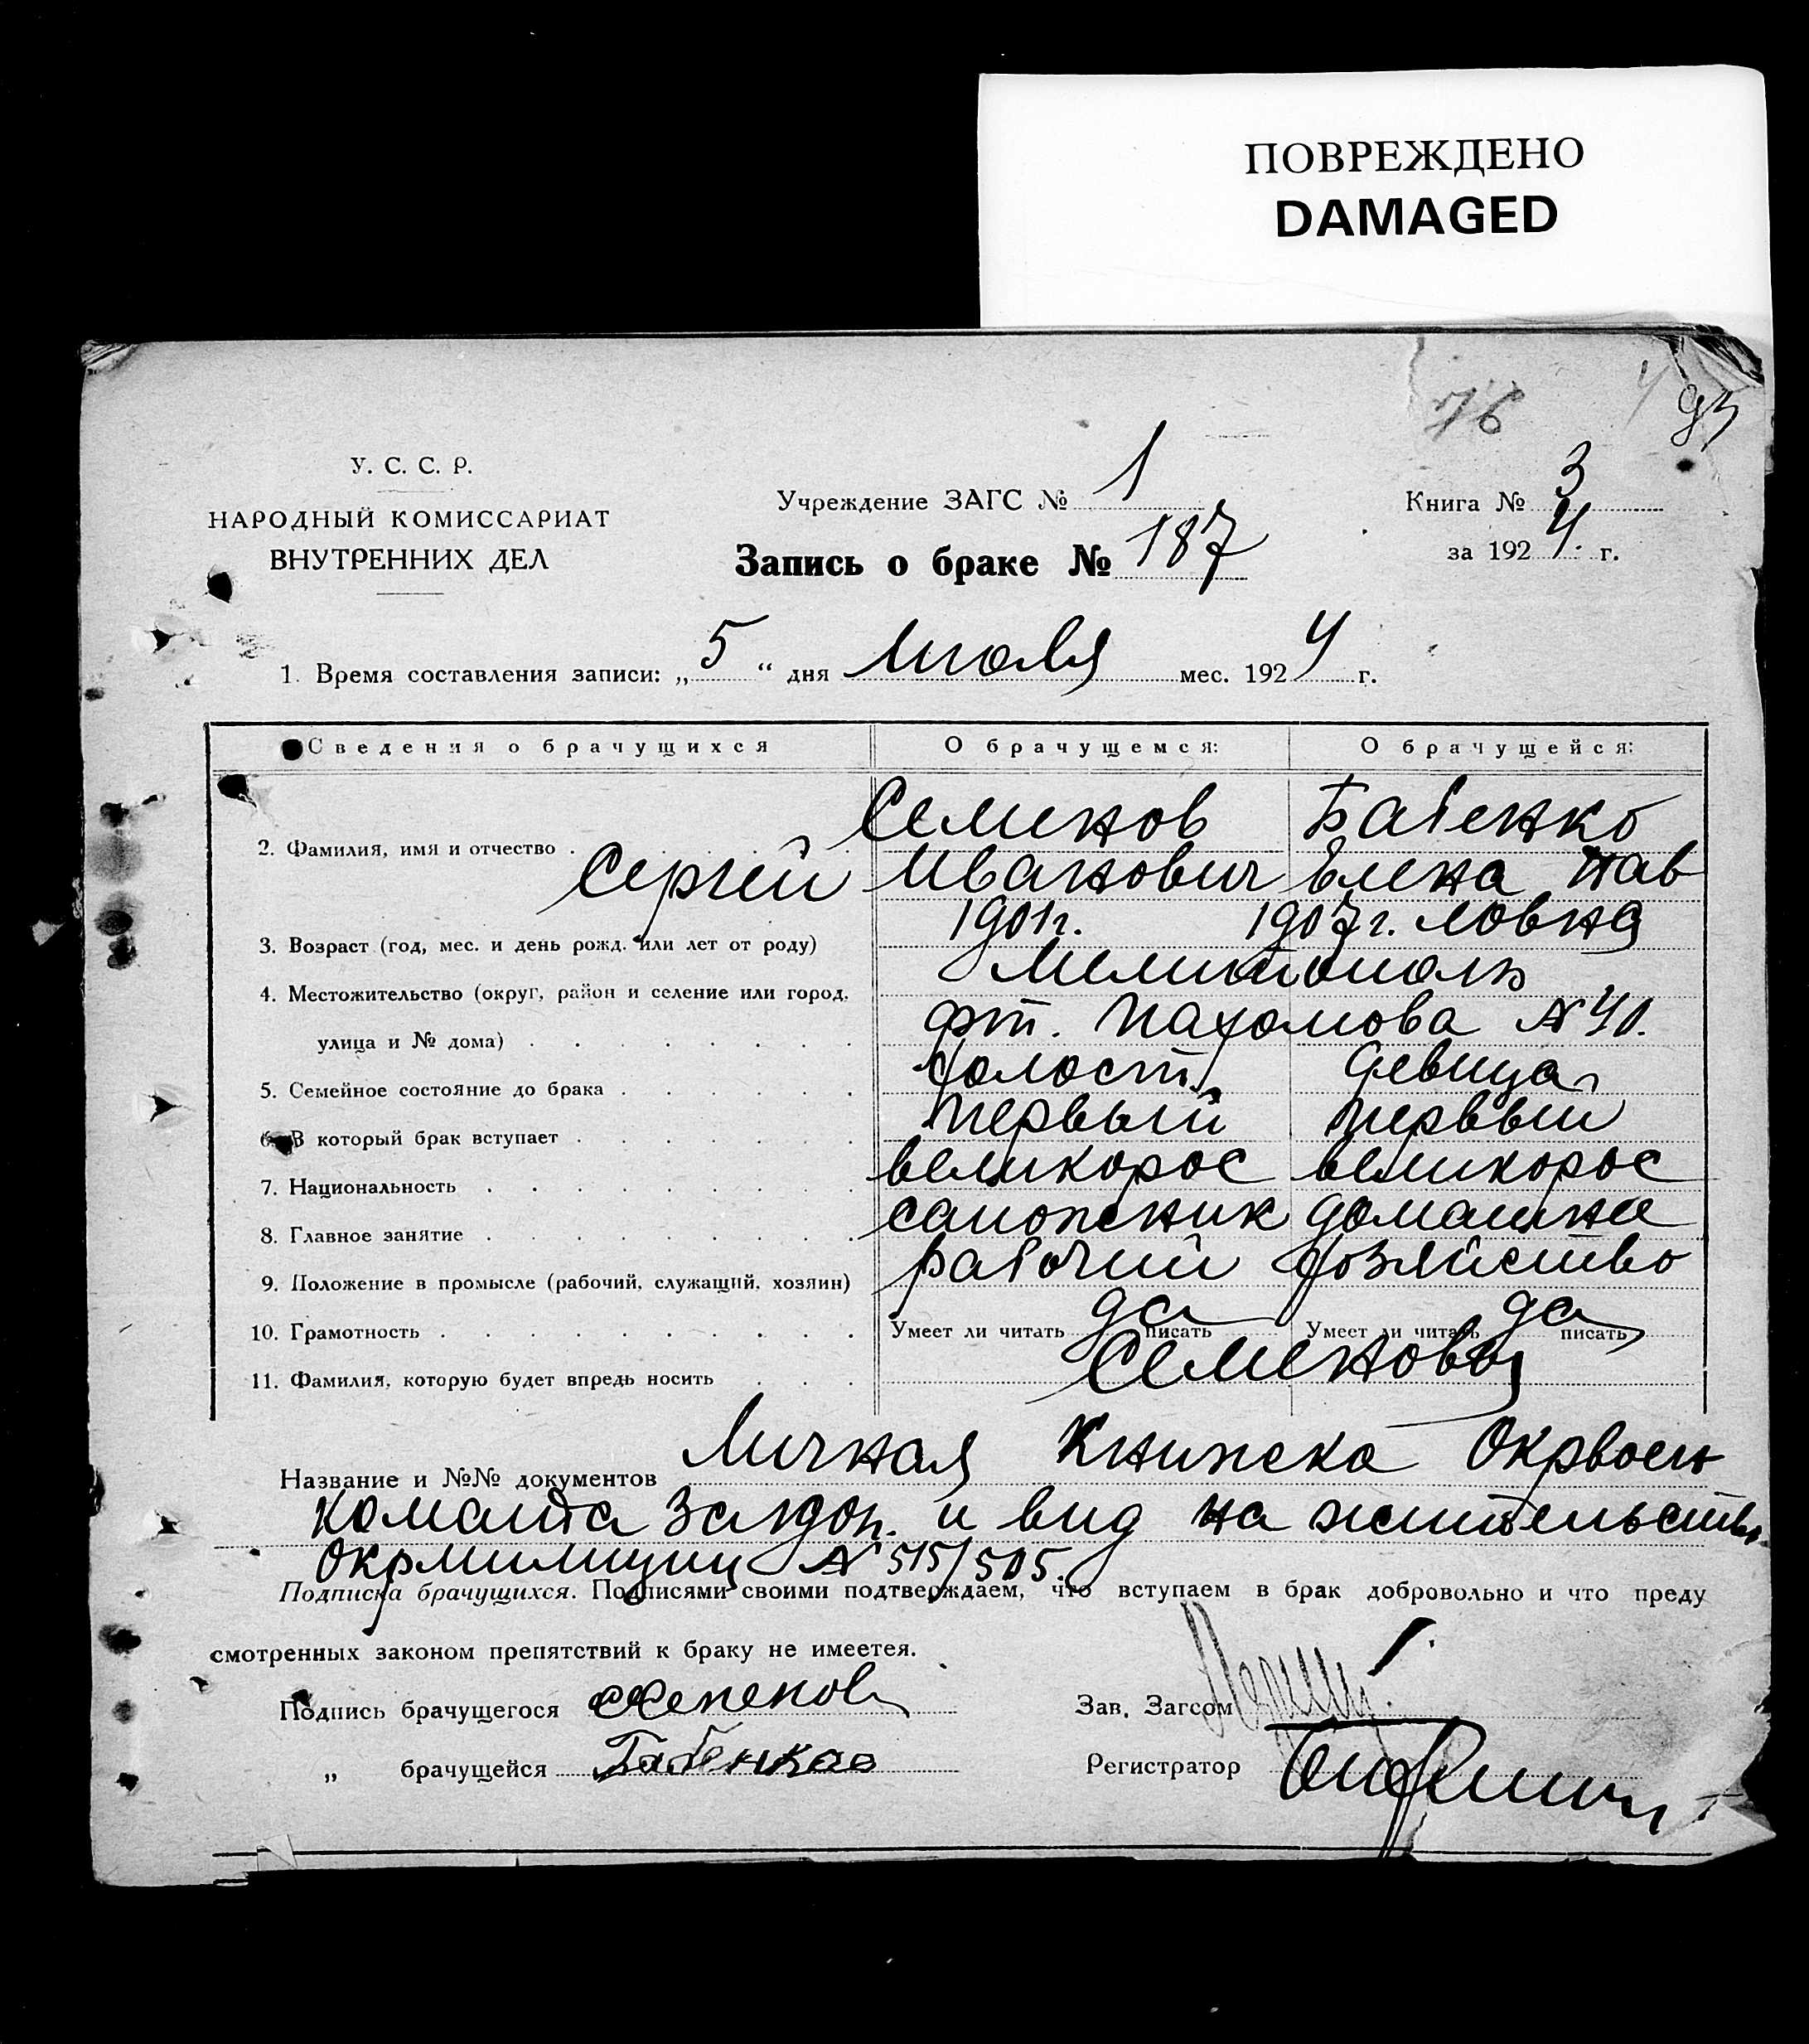 ПОВРЕЖДЕНО
DAMAGED
76
95
У. С. С. Р.
НАРОДНЫЙ КОМИССАРИАТ
ВНУТРЕННИХ ДЕЛ
Учреждение ЗАГС № 1
Книга № 3
за 1924 г.
Запись о браке № 187
1. Время составления записи: „5“ дня Июля мес. 1924 г.
Сведения о брачущихся О брачущемся: О брачущейся:
Семенов Бабенко
2. Фамилия, имя и отчество
Сергей Иванович Елена Пав
1901 г. 1907 г. ловна
3. Возраст (год, мес. и день рожд. или лет от роду)
Мелитополь
4. Местожительство (округ, район и селение или город,
улица и № дома) Пахомова № 40.
5. Семейное состояние до брака холост девица
6. В который брак вступает первый первый
7. Национальность великорос великорос
8. Главное занятие сапожник домашнее
9. Положение в промысле (рабочий, служащий, хозяин) рабочий хозяйство
10. Грамотность Умеет ли читать да писать Умеет ли читать да писать
11. Фамилия, которую будет впредь носить Семеновы
Название и №№ документов Личная Книжка Окрвоен
команда и вид на жительство
Окрмилиции № 515/505.
Подписка брачущихся. Подписями своими подтверждаем, что вступаем в брак добровольно и что преду
смотренных законом препятствий к браку не имеетея.
Подпись брачущегося Семенов
Зав. Загсом
„ брачущейся Бабенко
Регистратор